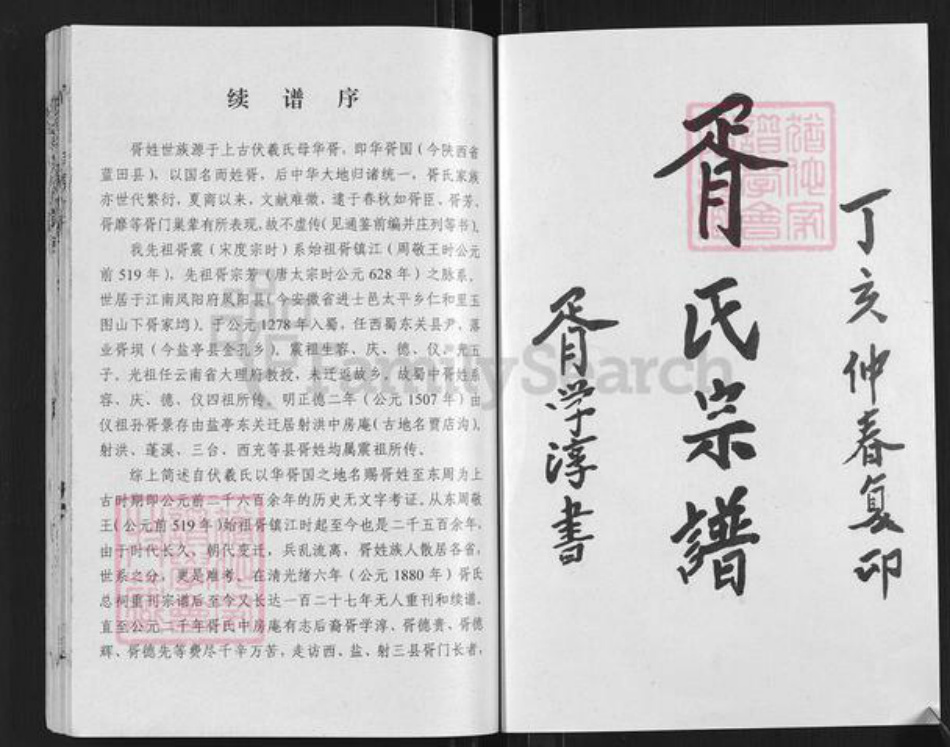 续谱序
胥姓世族源于上古伏羲氏母华胥,即华胥国(今陕西省
蓝田县),以国名而姓胥,后中华大地归诸统一,胥氏家族
亦世代繁衍,夏商以来,文献难徵,逮于春秋如胥臣、胥芳、
胥靡等胥门巢辈有所表现,故不虚传(见通鉴前编并庄列等书)。
我先祖胥震(宋度宗时)系始祖胥镇江(周敬王时公元
前519年),先祖胥宗芳(唐太宗时公元628年)之脉系,
世居于江南凤阳府凤阳县(今安徽省进士邑太平乡仁和里玉
图山下胥家坞)。于公元1278年入蜀,任西蜀东关县尹,落
业胥坝(今盐亭县金孔乡)。震祖生容、庆、德、仪、光五
子。光祖任云南省大理府教授,未迁返故乡。故蜀中胥姓系
容、庆、德、仪四祖所传。明正德二年(公元1507年)由
仪祖孙胥景存由盐亭东关迁居射洪中房庵(古地名贾店沟)。
射洪、蓬溪、三台、西充等县胥姓均属震祖所传。
综上简述自伏羲氏以华胥国之地名赐胥姓至东周为上
古时期即公元前二千六百余年的历史无文字考证。从东周敬
王(公元前519年)始祖胥镇江时起至今也是二千五百余年,
由于时代长久、朝代变迁,兵乱流离,胥姓族人散居各省,
世系之分,更是难考。在清光绪六年(公元1880年)胥氏
总祠重刊宗谱后至今又长达一百二十七年无人重刊和续谱。
直至公元二千年胥氏中房庵有志后裔胥学淳、胥德贵、胥德
辉、胥德先等费尽千辛万苦,走访西、盐、射三县胥门长者,
丁亥仲春复印
胥氏宗譜
胥学淳書
FamilySearch